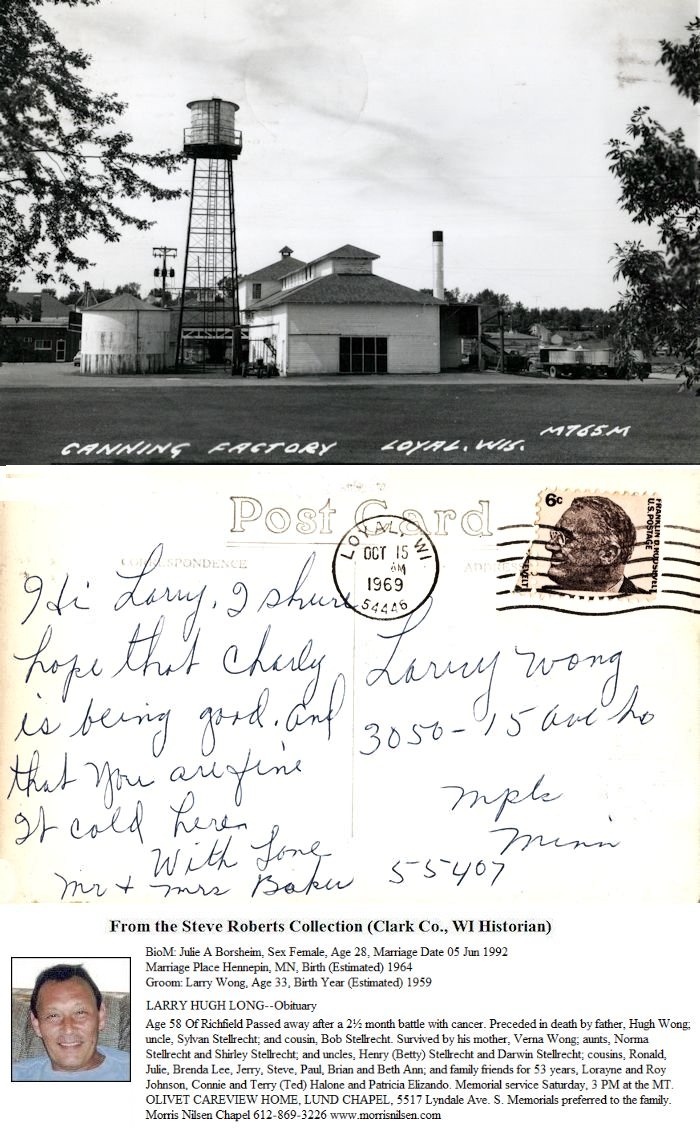 CANNING FACTORY LOYAL, WIS. M765M
Post Card
CORRESPONDENCE
ADDRESS
LOYAL, WI
OCT 15
AM
1969
54446
6c
FRANKLIN D. ROOSEVELT
U.S. POSTAGE
Hi Larry, I shure
hope that Charly
is being good. and
that you are fine
It cold here
With Love
Mr + Mrs Baker
Larry Wong
3050-15 ave So
Mpls
Minn
55407
From the Steve Roberts Collection (Clark Co., WI Historian)
BioM: Julie A Borsheim, Sex Female, Age 28, Marriage Date 05 Jun 1992
Marriage Place Hennepin, MN, Birth (Estimated) 1964
Groom: Larry Wong, Age 33, Birth Year (Estimated) 1959
LARRY HUGH LONG--Obituary
Age 58 Of Richfield Passed away after a 2½ month battle with cancer. Preceded in death by father, Hugh Wong;
uncle, Sylvan Stellrecht; and cousin, Bob Stellrecht. Survived by his mother, Verna Wong; aunts, Norma
Stellrecht and Shirley Stellrecht; and uncles, Henry (Betty) Stellrecht and Darwin Stellrecht; cousins, Ronald,
Julie, Brenda Lee, Jerry, Steve, Paul, Brian and Beth Ann; and family friends for 53 years, Lorayne and Roy
Johnson, Connie and Terry (Ted) Halone and Patricia Elizando. Memorial service Saturday, 3 PM at the MT.
OLIVET CAREVIEW HOME, LUND CHAPEL, 5517 Lyndale Ave. S. Memorials preferred to the family.
Morris Nilsen Chapel 612-869-3226 www.morrisnilsen.com